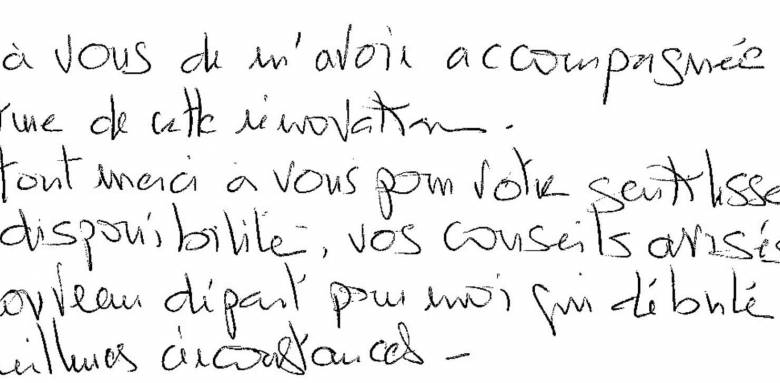 à vous de m'avoir accompagnée
rme de cette rénovation.
tout merci à vous pour votre gentillesse
disponibilité, vos conseils avisés
ouveau départ pour moi qui débute
eilleures circonstances -